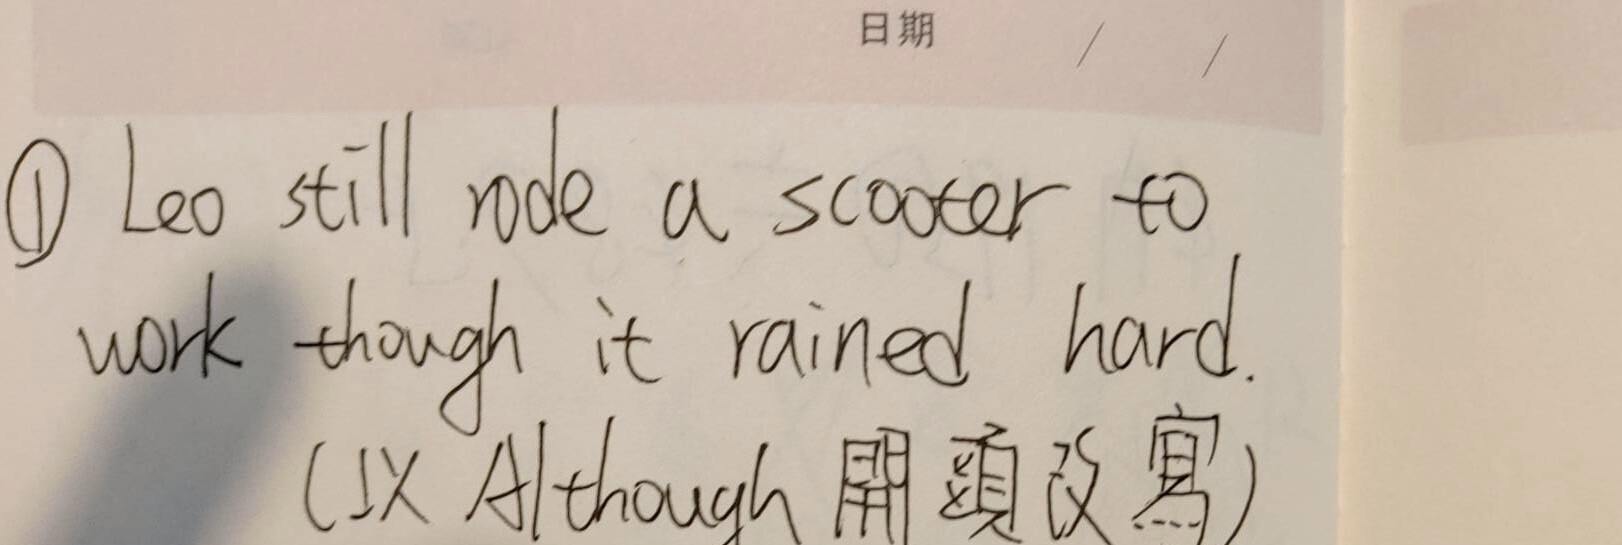 日期 / /
① Leo still rode a scooter to
work though it rained hard.
(以 Although 開頭改寫)